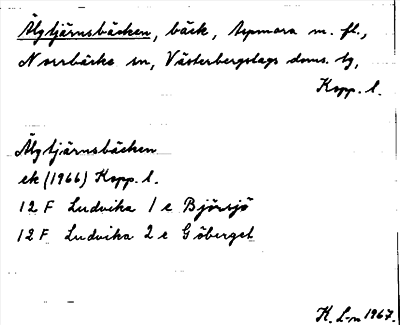 Älgtjärnsbäcken, bäck, Aspmora m. fl.,
Norrbäcke sn, Västerbergslags doms. tg,
Kopp. l.
Älgtjärnsbäcken
ek (1966) Kopp. l.
12 F Ludvika 1 e Björsjö
12 F Ludvika 2 e Gåberget
K. L-n 1967.